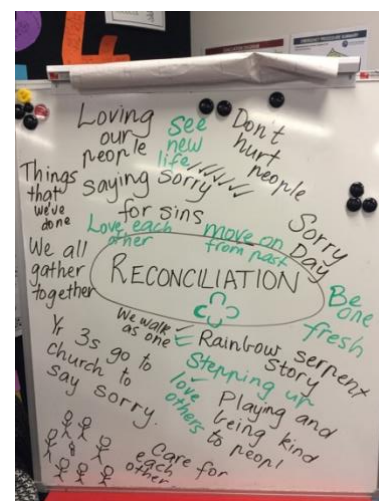 Loving
our
people
see
new
life
Don't
hurt
people
Things
that
we've
done
saying sorry
for sins
Love each
other
move on
from past
Sorry
Day
We all
gather
together
RECONCILIATION
Be
one
fresh
We walk
as one
Rainbow serpent
story
Yr 3s go to
church to
say sorry.
Stepping up
love
others
Playing and
being kind
to peopl
Care for
each
other.